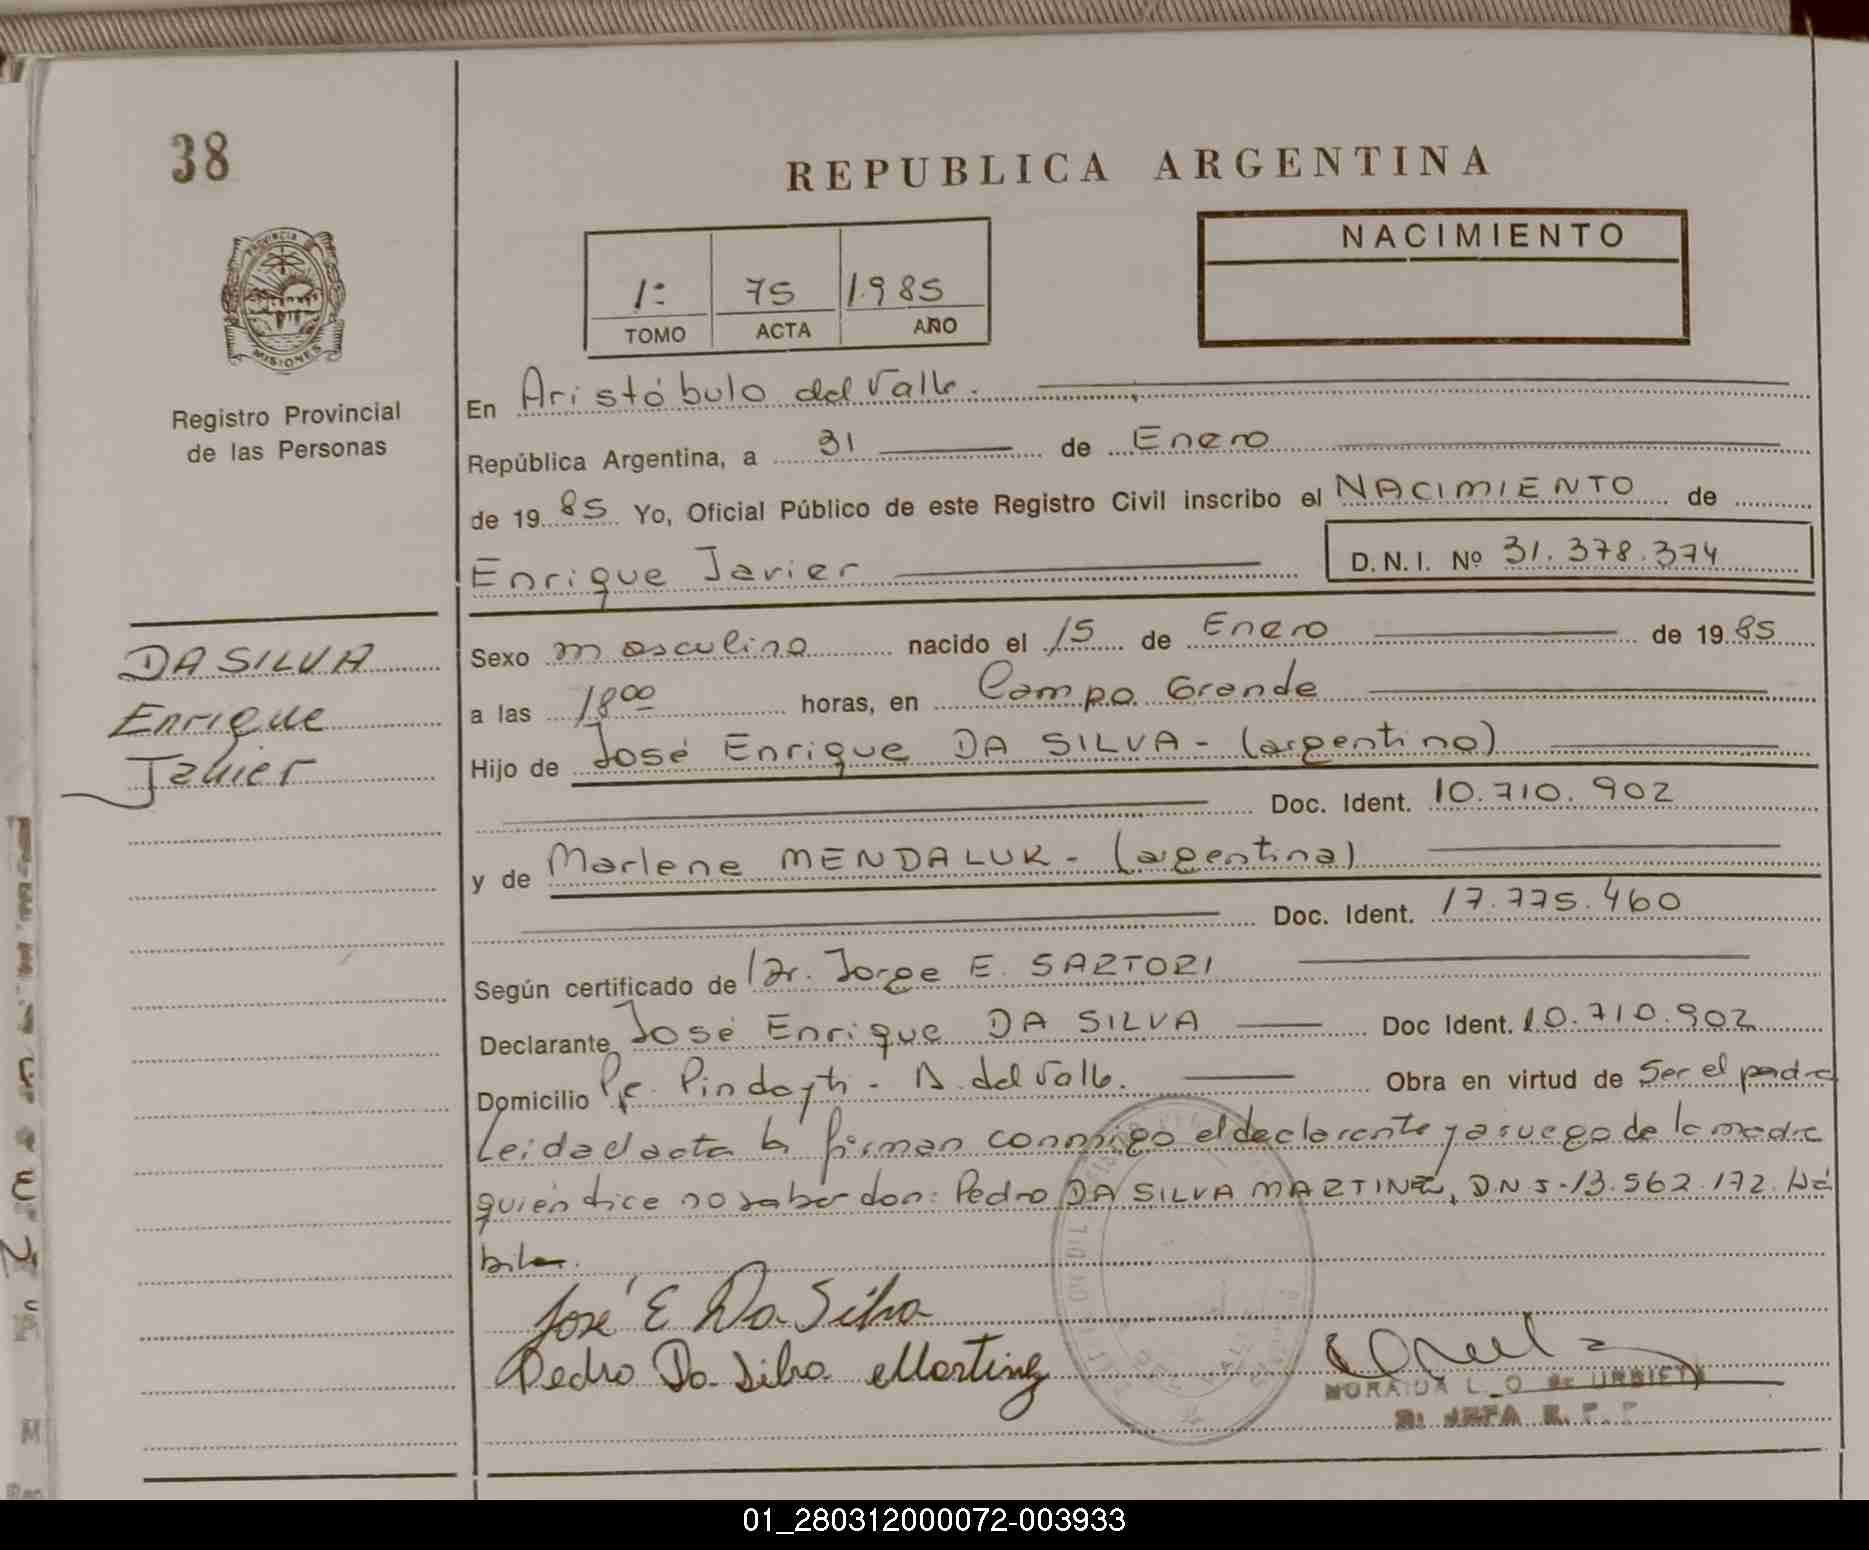 38
REPUBLICA ARGENTINA
NACIMIENTO
1º 75 1.985
TOMO ACTA AÑO
PROVINCIA
MISIONES
Registro Provincial
de las Personas
En Aristóbulo del Valle.
República Argentina, a 31 de Enero
de 19 85 Yo, Oficial Público de este Registro Civil inscribo el NACIMIENTO de
Enrique Javier D.N.I. Nº 31.378.374
DA SILVA
Enrique
Javier
Sexo masculino nacido el 15 de Enero de 19 85
a las 18 00 horas, en Campo Grande
Hijo de José Enrique DA SILVA - (argentino)
Doc. Ident. 10.710.902
y de Marlene MENDALUK - (argentina)
Doc. Ident. 17.775.460
Según certificado de Dr. Jorge E. SARTORI
Declarante José Enrique DA SILVA Doc Ident. 10.710.902
Domicilio Pindayti - A. del Valle. Obra en virtud de Ser el padre
Leida el acta la firman conmigo el declarante y a ruego de la madre
quién dice no saber don: Pedro DA SILVA MARTINEZ, D.N.I-13.562.172. Há
bil
José E Da Silva
Pedro Da Silva Martinez
MORAIDA L. O. de URBIETA
JEFA R. P. P.
01_280312000072-003933